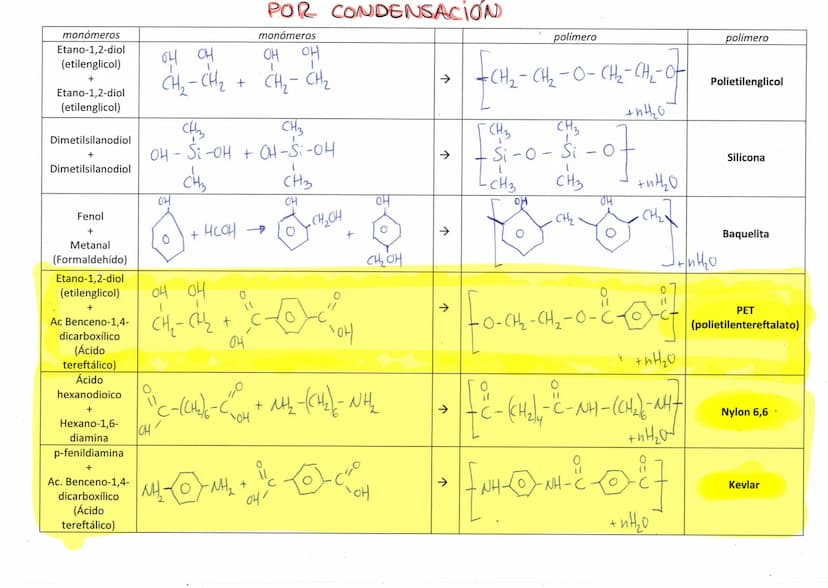 POR CONDENSACIÓN
monómeros monómeros polímero polímero
Etano-1,2-diol
(etilenglicol)
+
Etano-1,2-diol
(etilenglicol)
OH OH OH OH
CH₂-CH₂ + CH₂-CH₂
→
[CH₂-CH₂-O-CH₂-CH₂-O]
+nH₂O
Polietilenglicol
Dimetilsilanodiol
+
Dimetilsilanodiol
CH₃ CH₃
OH-Si-OH + OH-Si-OH
CH₃ CH₃
→
CH₃ CH₃
[Si-O-Si-O]
CH₃ CH₃ +nH₂O
Silicona
Fenol
+
Metanal
(Formaldehído)
OH OH OH
+ HCOH → CH₂OH +
CH₂OH
→
OH OH
CH₂ CH₂
+nH₂O
Baquelita
Etano-1,2-diol
(etilenglicol)
+
Ac Benceno-1,4-
dicarboxílico
(Ácido
tereftálico)
OH OH O O
CH₂-CH₂ + C C
OH OH
→
O O
[O-CH₂-CH₂-O-C C]
+nH₂O
PET
(polietilentereftalato)
Ácido
hexanodioico
+
Hexano-1,6-
diamina
O O
C-(CH₂)₆-C + NH₂-(CH₂)₆-NH₂
OH OH
→
O O
[C-(CH₂)₄-C-NH-(CH₂)₆-NH]
+nH₂O
Nylon 6,6
p-fenildiamina
+
Ac. Benceno-1,4-
dicarboxílico
(Ácido
tereftálico)
O O
NH₂ NH₂ + C C
OH OH
→
O O
[NH NH-C C]
+nH₂O
Kevlar